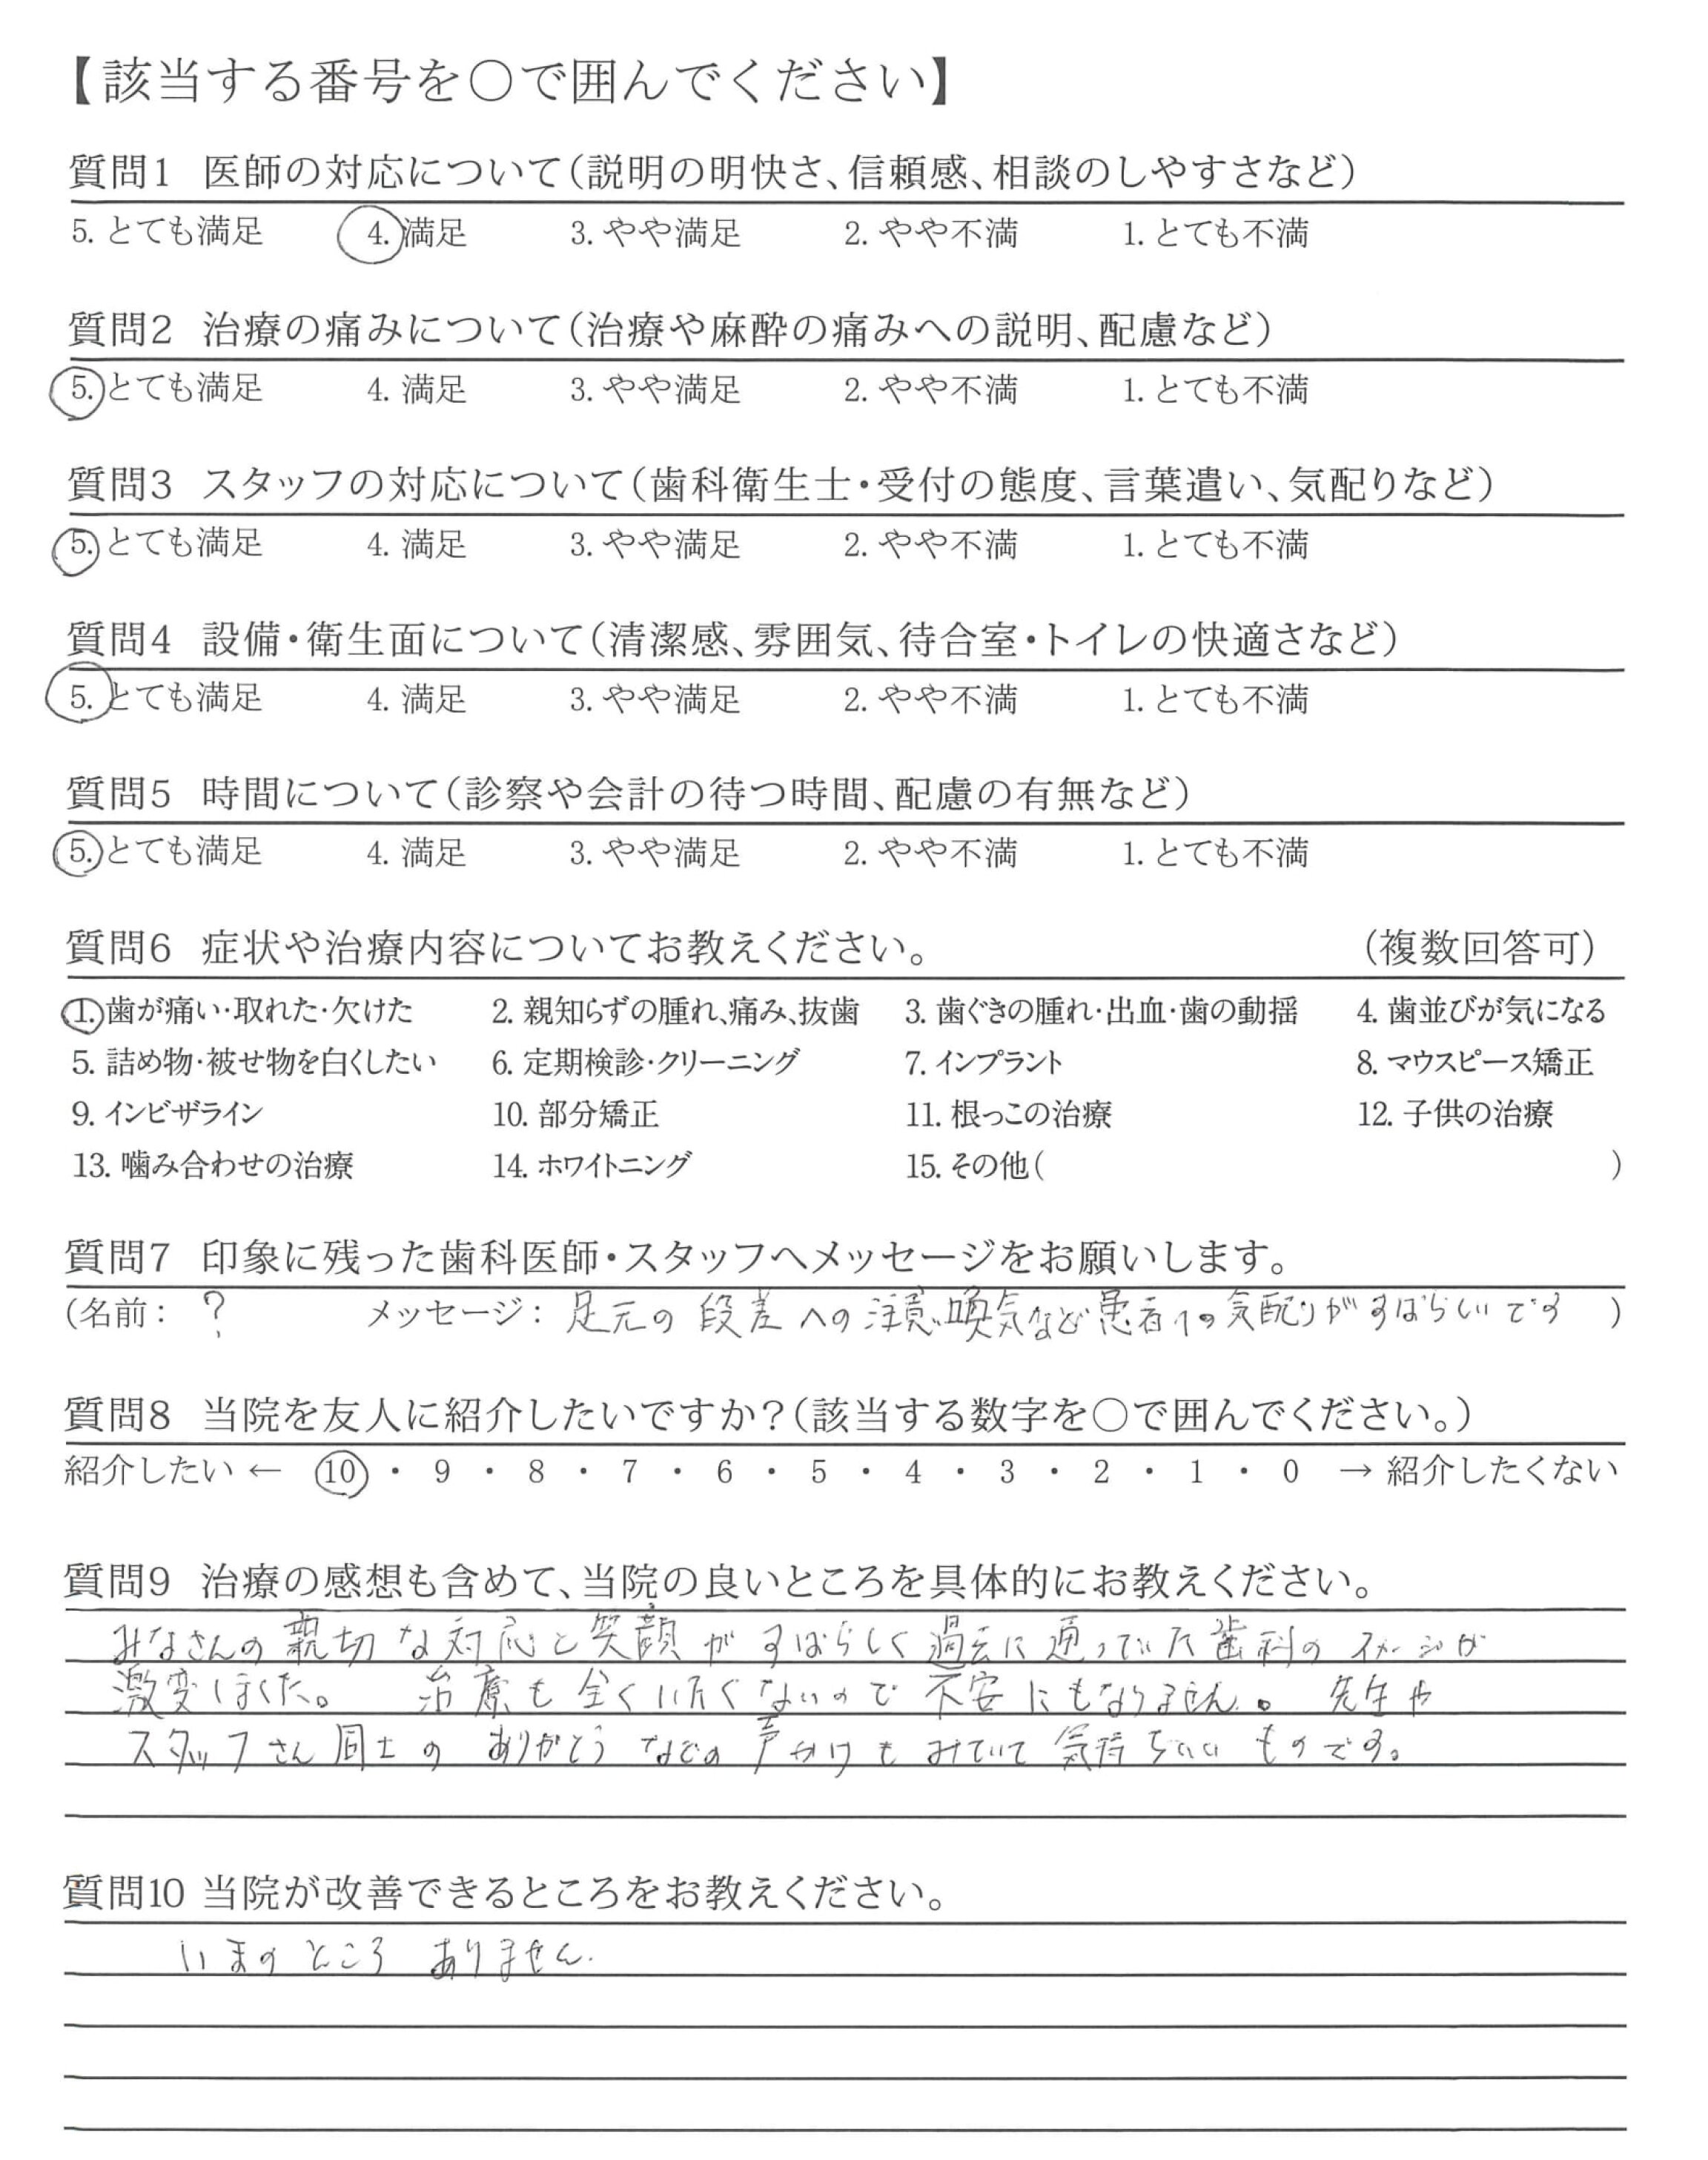 【該当する番号を○で囲んでください】
質問1 医師の対応について(説明の明快さ、信頼感、相談のしやすさなど)
5. とても満足 4. 満足 3. やや満足 2. やや不満 1. とても不満
質問2 治療の痛みについて(治療や麻酔の痛みへの説明、配慮など)
5. とても満足 4. 満足 3. やや満足 2. やや不満 1. とても不満
質問3 スタッフの対応について(歯科衛生士・受付の態度、言葉遣い、気配りなど)
5. とても満足 4. 満足 3. やや満足 2. やや不満 1. とても不満
質問4 設備・衛生面について(清潔感、雰囲気、待合室・トイレの快適さなど)
5. とても満足 4. 満足 3. やや満足 2. やや不満 1. とても不満
質問5 時間について(診察や会計の待つ時間、配慮の有無など)
5. とても満足 4. 満足 3. やや満足 2. やや不満 1. とても不満
質問6 症状や治療内容についてお教えください。 (複数回答可)
1. 歯が痛い・取れた・欠けた 2. 親知らずの腫れ、痛み、抜歯 3. 歯ぐきの腫れ・出血・歯の動揺 4. 歯並びが気になる
5. 詰め物・被せ物を白くしたい 6. 定期検診・クリーニング 7. インプラント 8. マウスピース矯正
9. インビザライン 10. 部分矯正 11. 根っこの治療 12. 子供の治療
13. 噛み合わせの治療 14. ホワイトニング 15. その他( )
質問7 印象に残った歯科医師・スタッフへメッセージをお願いします。
(名前： ? メッセージ： 足元の段差への注意喚気など患者への気配りがすばらしいです )
質問8 当院を友人に紹介したいですか?(該当する数字を○で囲んでください。)
紹介したい ← 10 ・ 9 ・ 8 ・ 7 ・ 6 ・ 5 ・ 4 ・ 3 ・ 2 ・ 1 ・ 0 → 紹介したくない
質問9 治療の感想も含めて、当院の良いところを具体的にお教えください。
みなさんの親切な対応と笑顔がすばらしく過去に通っていた歯科のイメージが
激変しました。 治療も全くいたくないので不安にもなりません。 先生や
スタッフさん同士のありがとうなどの声かけもみていて気持ちいいものです。
質問10 当院が改善できるところをお教えください。
いまのところありません.